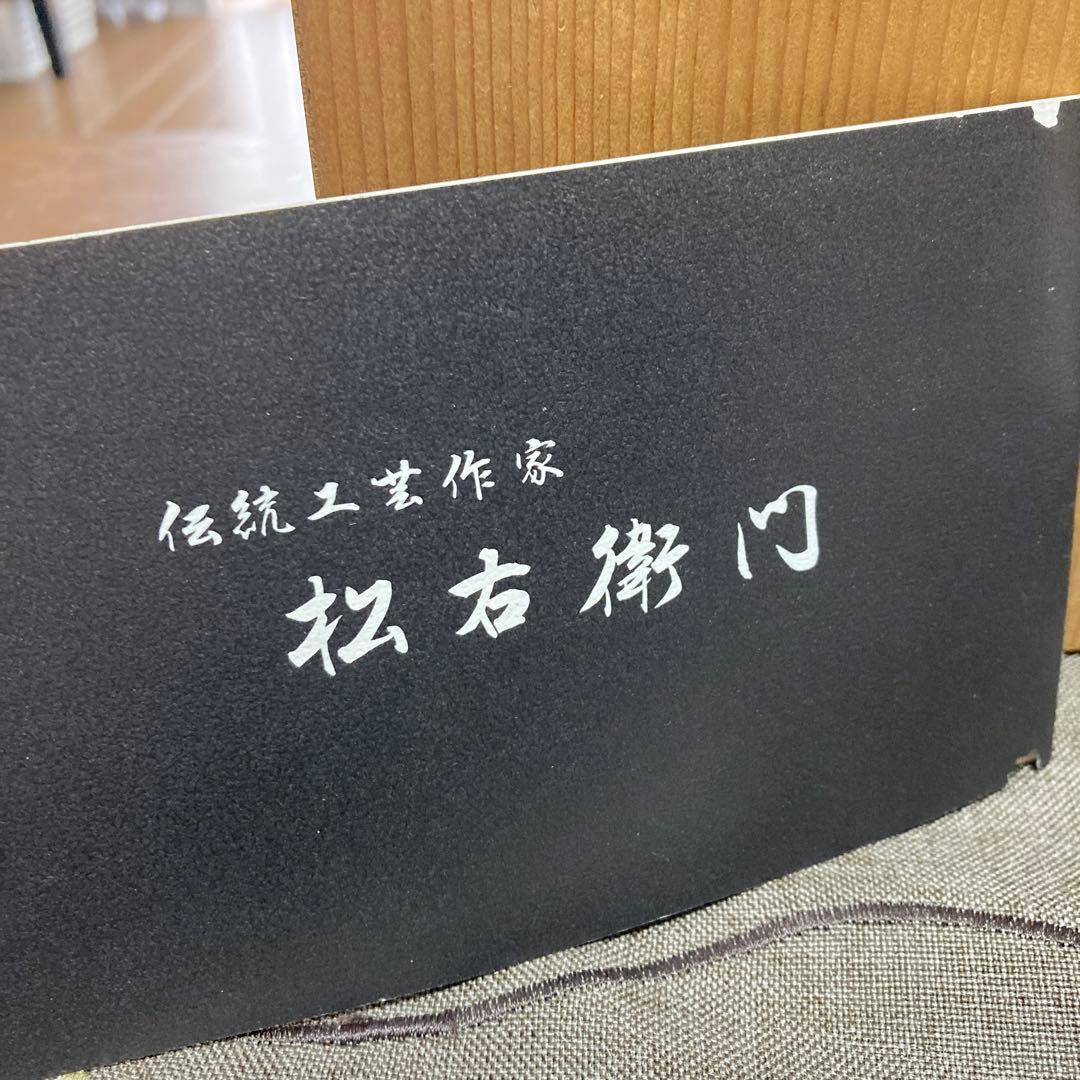 伝統工芸作家
松右衛门